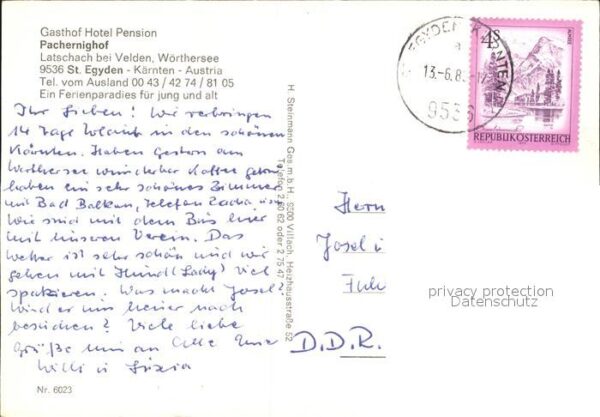 Gasthof Hotel Pension
Pachernighof
Latschach bei Velden, Wörthersee
9536 St. Egyden - Kärnten - Austria
Tel. vom Ausland 00 43 / 42 74 / 81 05
Ein Ferienparadies für jung und alt
Ihr Lieben! Wir verbringen
14 Tage Urlaub in den schönen
Kärnten. Haben gestern am
Wörthersee wunderbar Kaffee getrun
haben ein sehr schönes Zimmer
mit Bad Balkon, Telefon
Wir sind mit dem Bus hier
mit unseren Verein. Das
Wetter ist sehr schön und wir
gehen mit Hund (Lady) viel
spazieren. Was macht Josel?
Wird er uns
besuchen? Viele liebe
Grüße nun an Alle Eure
Willi u
Nr. 6023
H. Steinmann Ges.m.b.H., 9500 Villach, Heizhausstraße 52
Telefon 2 60 62 oder 2 75 47
ST. EGYDEN, KÄRNTEN
a
13.-6.8
9536
4S
REPUBLIK ÖSTERREICH
Herrn
Josel u
D.D.R.
privacy protection
Datenschutz